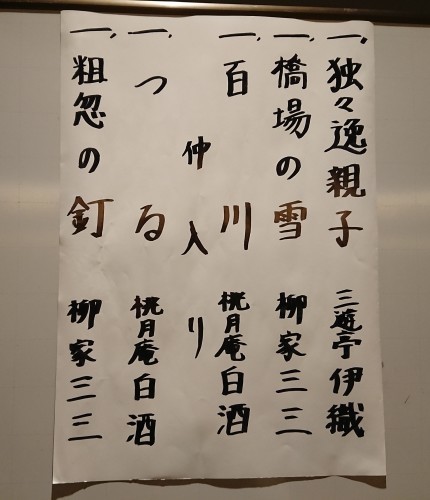 一、独々逸親子 三遊亭伊織
一、橋場の雪 柳家三三
一、百川 桃月庵白酒
仲入り
一、つる 桃月庵白酒
一、粗忽の釘 柳家三三